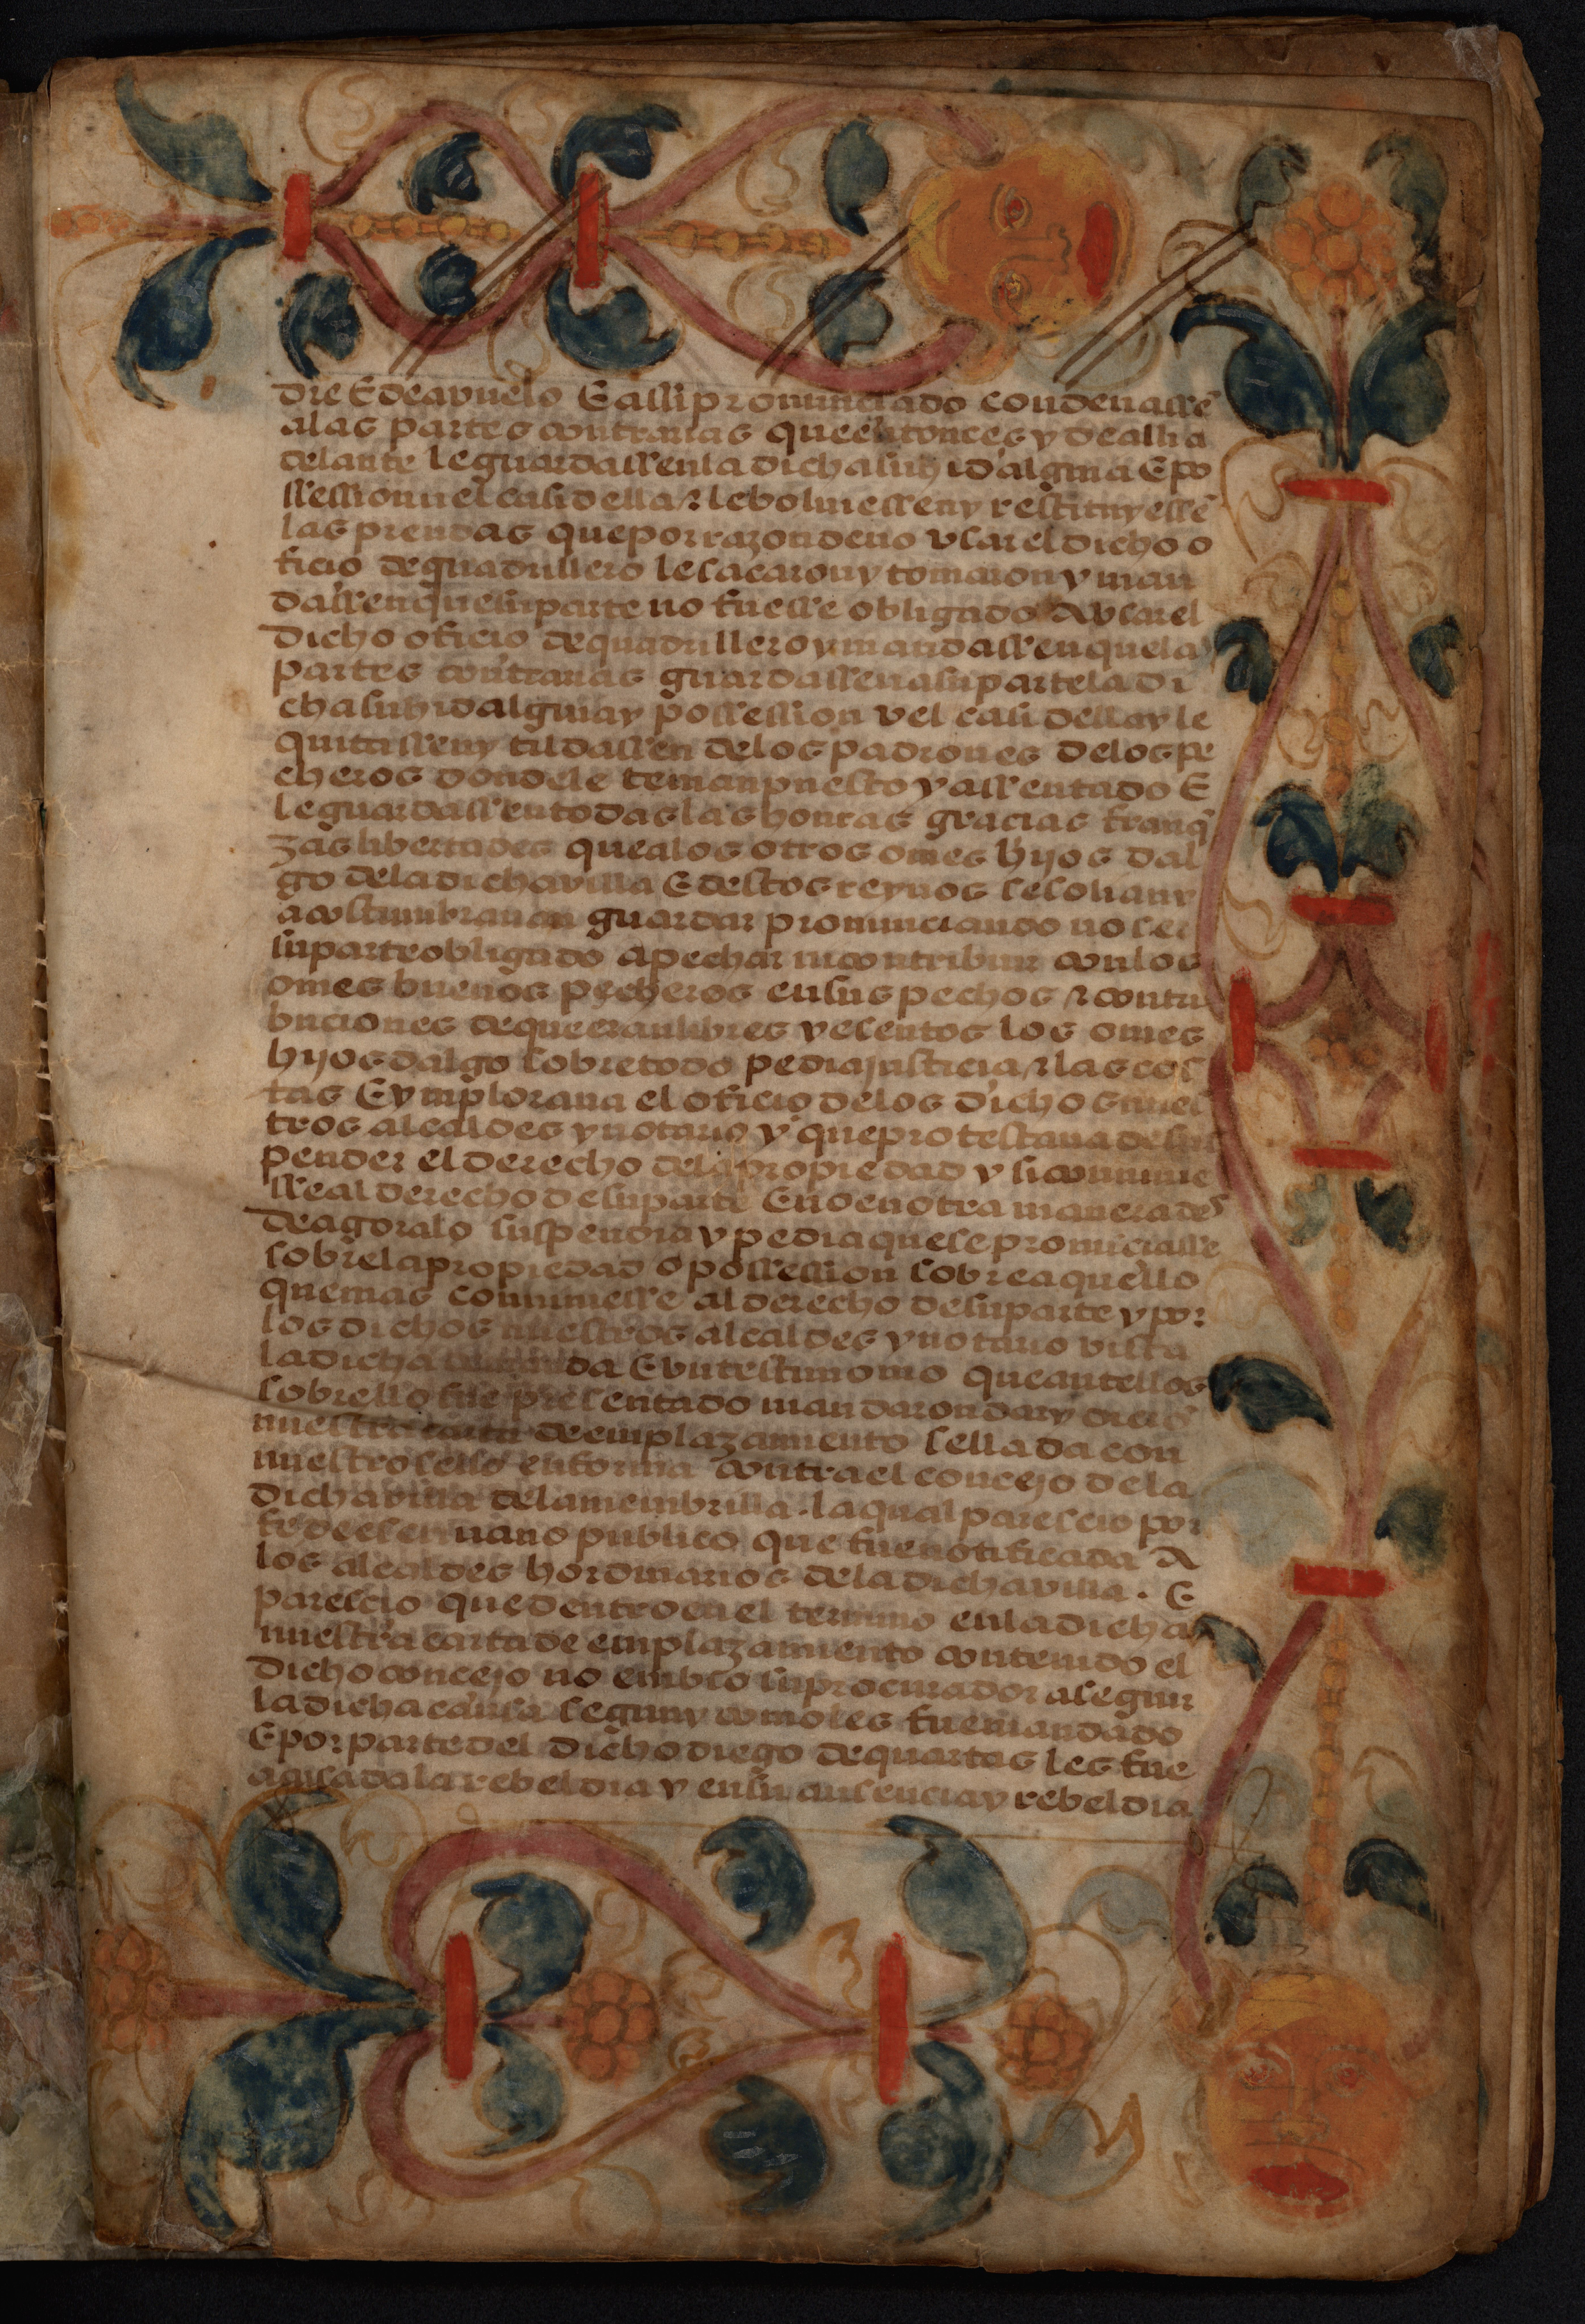 dre E de avuelo E assi pronunciado condenassē
a las partes contrarias que entonces y de alli a
delante le guardassen la dicha su hidalguia E po
ssession vel casi della r le bolviessen y restituyessē
las prendas que por razon de no usar el dicho o
ficio de quadrillero le sacaron y tomaron y man
dassen que su parte no fuesse obligado a usar el
dicho oficio de quadrillero y mandassen que las
partes contrarias guardassen a su parte la di
cha su hidalguia y possession vel casi della y le
quitassen y tildassen de los padrones de los pe
cheros donde le tenian puesto y assentado E
le guardassen todas las honras gracias franq̄
zas libertades que a los otros omes hijos dal
go de la dicha villa E destos reynos se solian y
acostumbravan guardar pronunciando no ser
su parte obligado a pechar ni contribuir con los
omes buenos pecheros en sus pechos r contri
buciones de que eran libres y esentos los omes
hijos dalgo sobre todo pedia justicia r las cos
tas E ymplorava el oficio de los dichos nues
tros alcaldes y notario y que protestava de sus
pender el derecho de la propiedad y si convinie
sse al derecho de su parte E no en otra manera des
de agora lo suspendia y pedia que se pronunciasse
sobre la propiedad o possession sobre aquello
que mas conviniesse al derecho de su parte y por
los dichos nuestros alcaldes y notario vista
la dicha demanda E un testimonio que ante ellos
sobrello fue presentado mandaron dar y dieron
nuestra carta de emplazamiento sellada con
nuestro sello en forma contra el concejo de la
dicha villa de la membrilla . la qual parescio por
fe de escrivano publico que fue notificada A
los alcaldes hordinarios de la dicha villa . E
parescio que dentro en el termino en la dicha
nuestra carta de emplazamiento contenido el
dicho concejo no embio su procurador a seguir
la dicha causa segun y como les fue mandado
E por parte del dicho diego de quartas les fue
acusada la rebeldia y en su ausencia y rebeldia